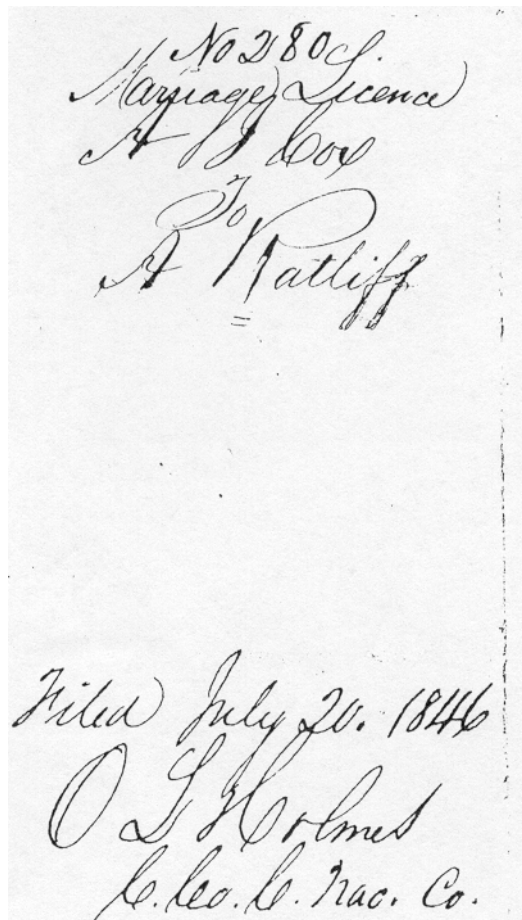 No 280
Marriage Licence
A J Cox
To
A Ratliff
Filed July 20. 1846
O L Holmes
C. Co. C. Nac. Co.